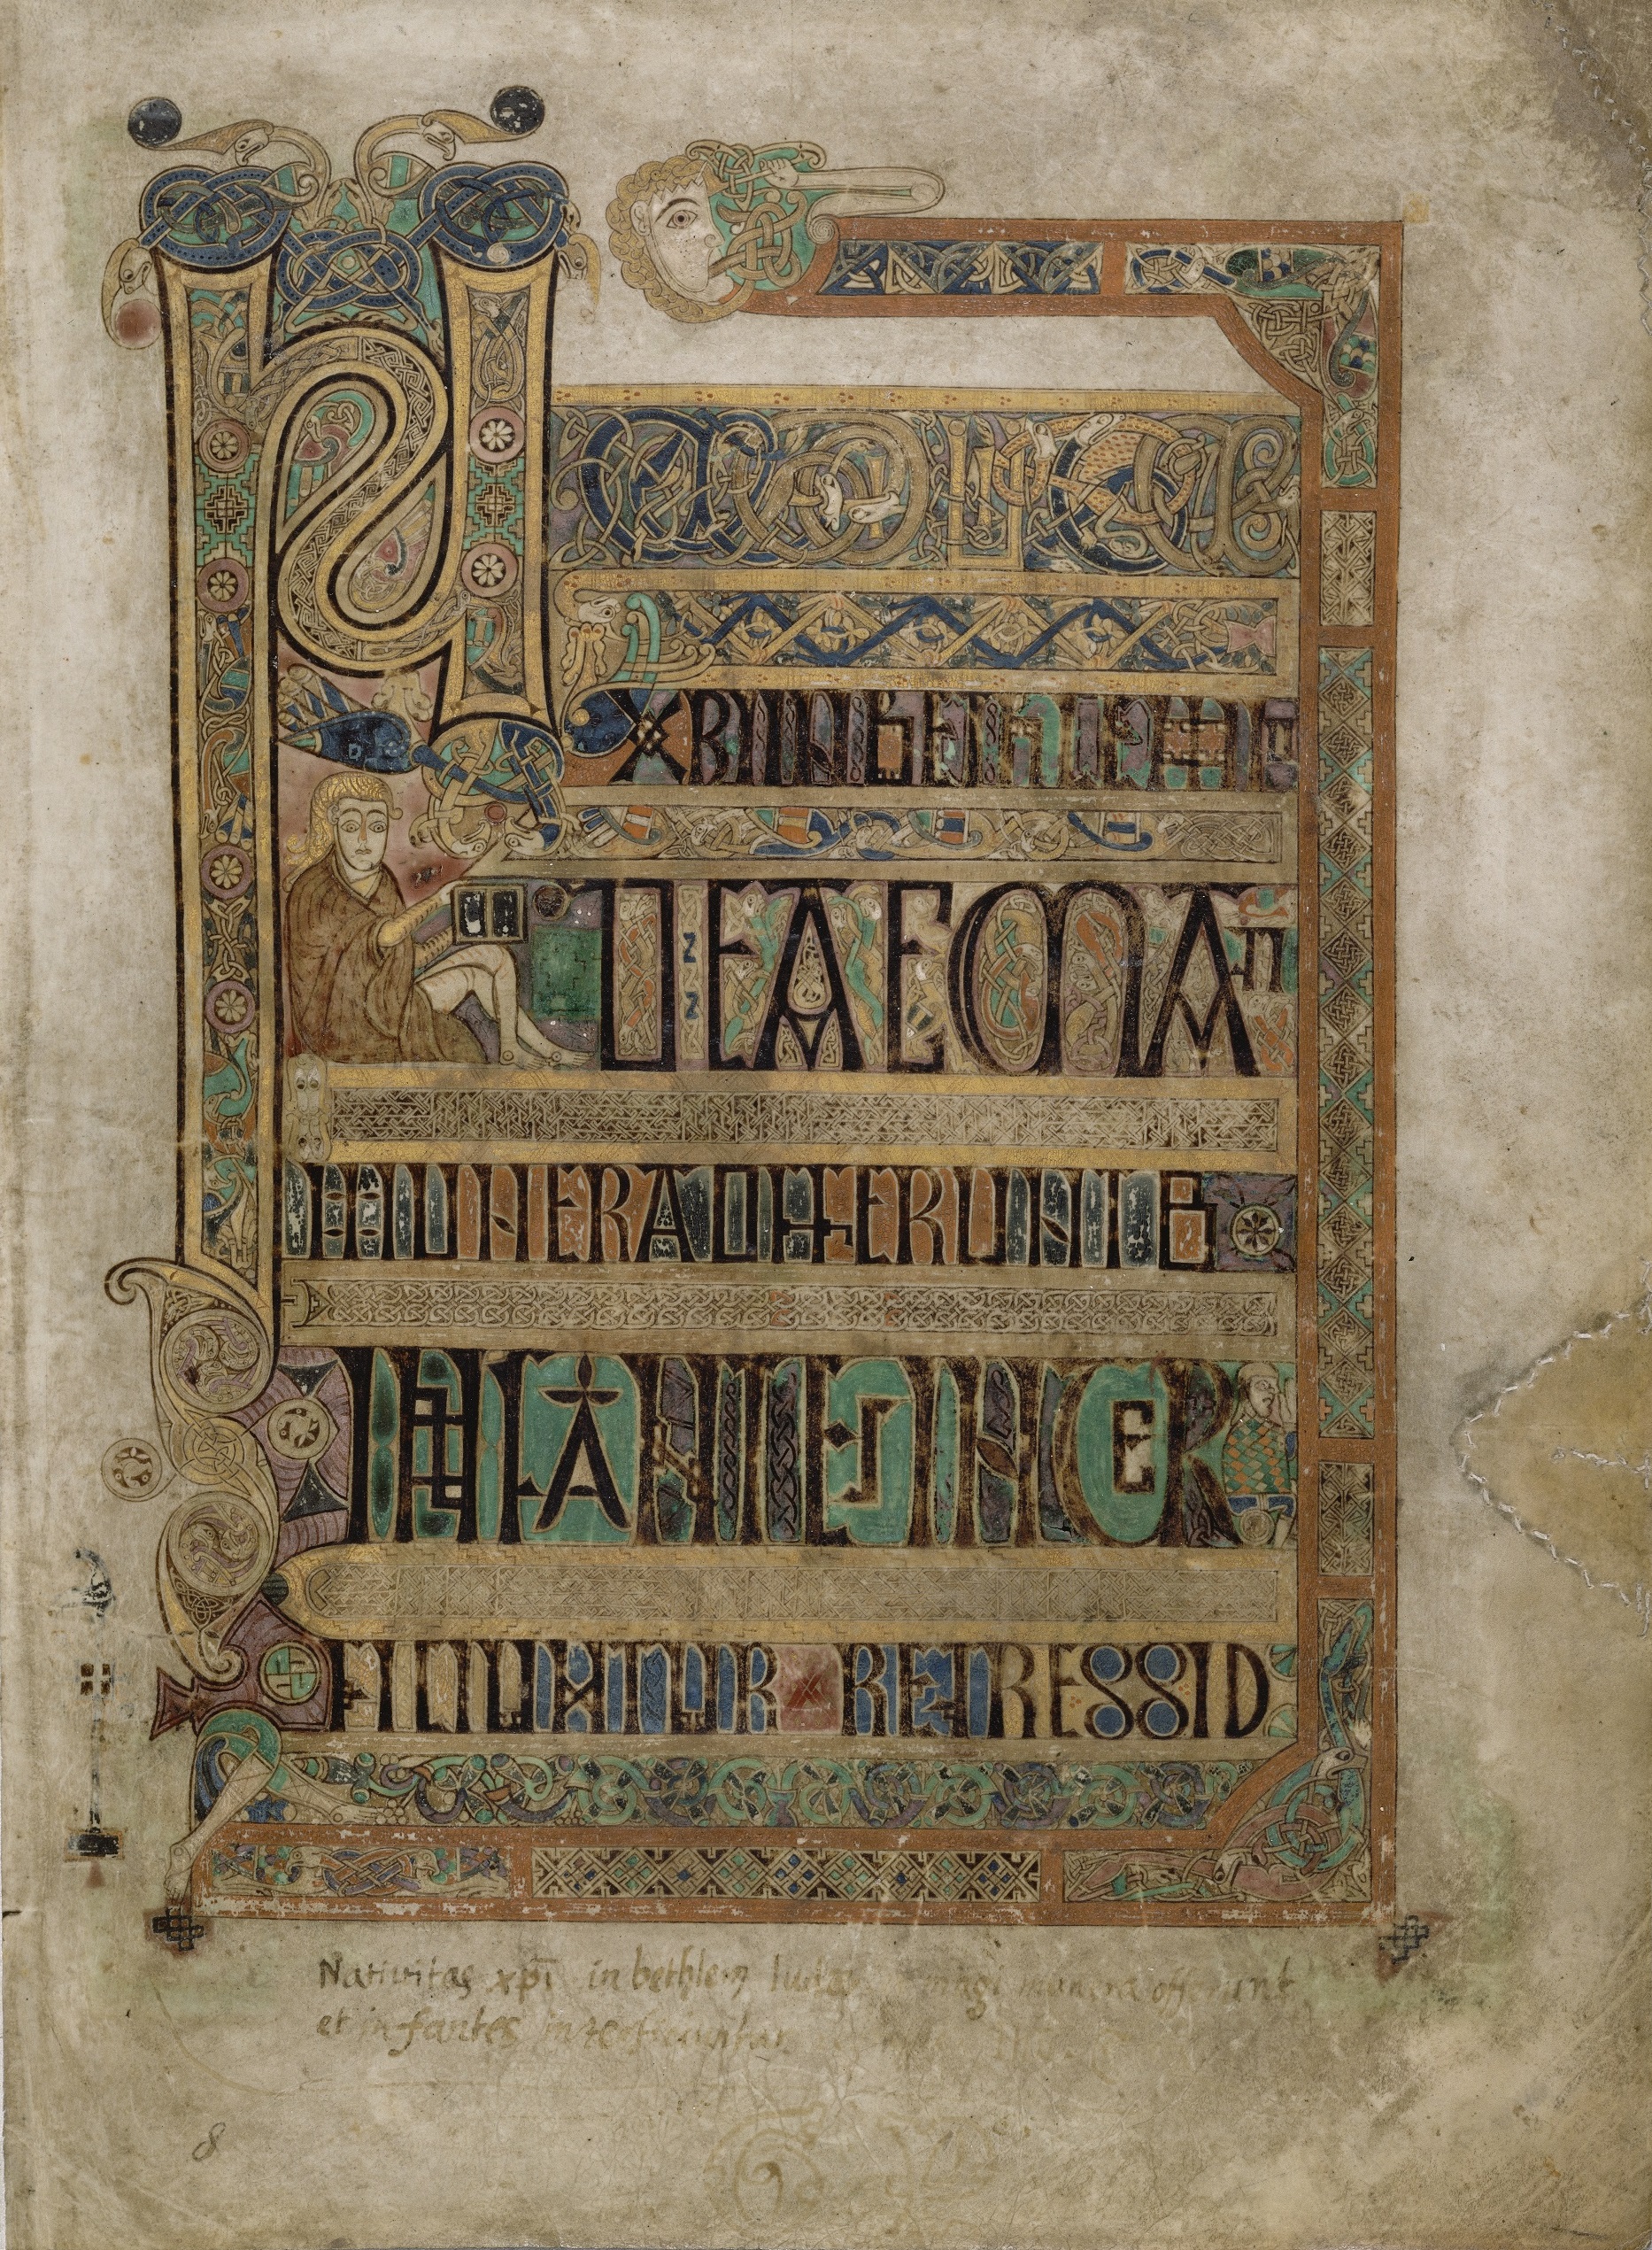 NATIUITAS
XPI IN BETHLEM
IUDEAE MAGI
MUNERA OFFERUNT ET
INFANTES INTER
FICIUNTUR REGRESSIO
Nativitas xp̄i in bethlem Iudeę magi munera offerunt
et infantes interficiuntur
8